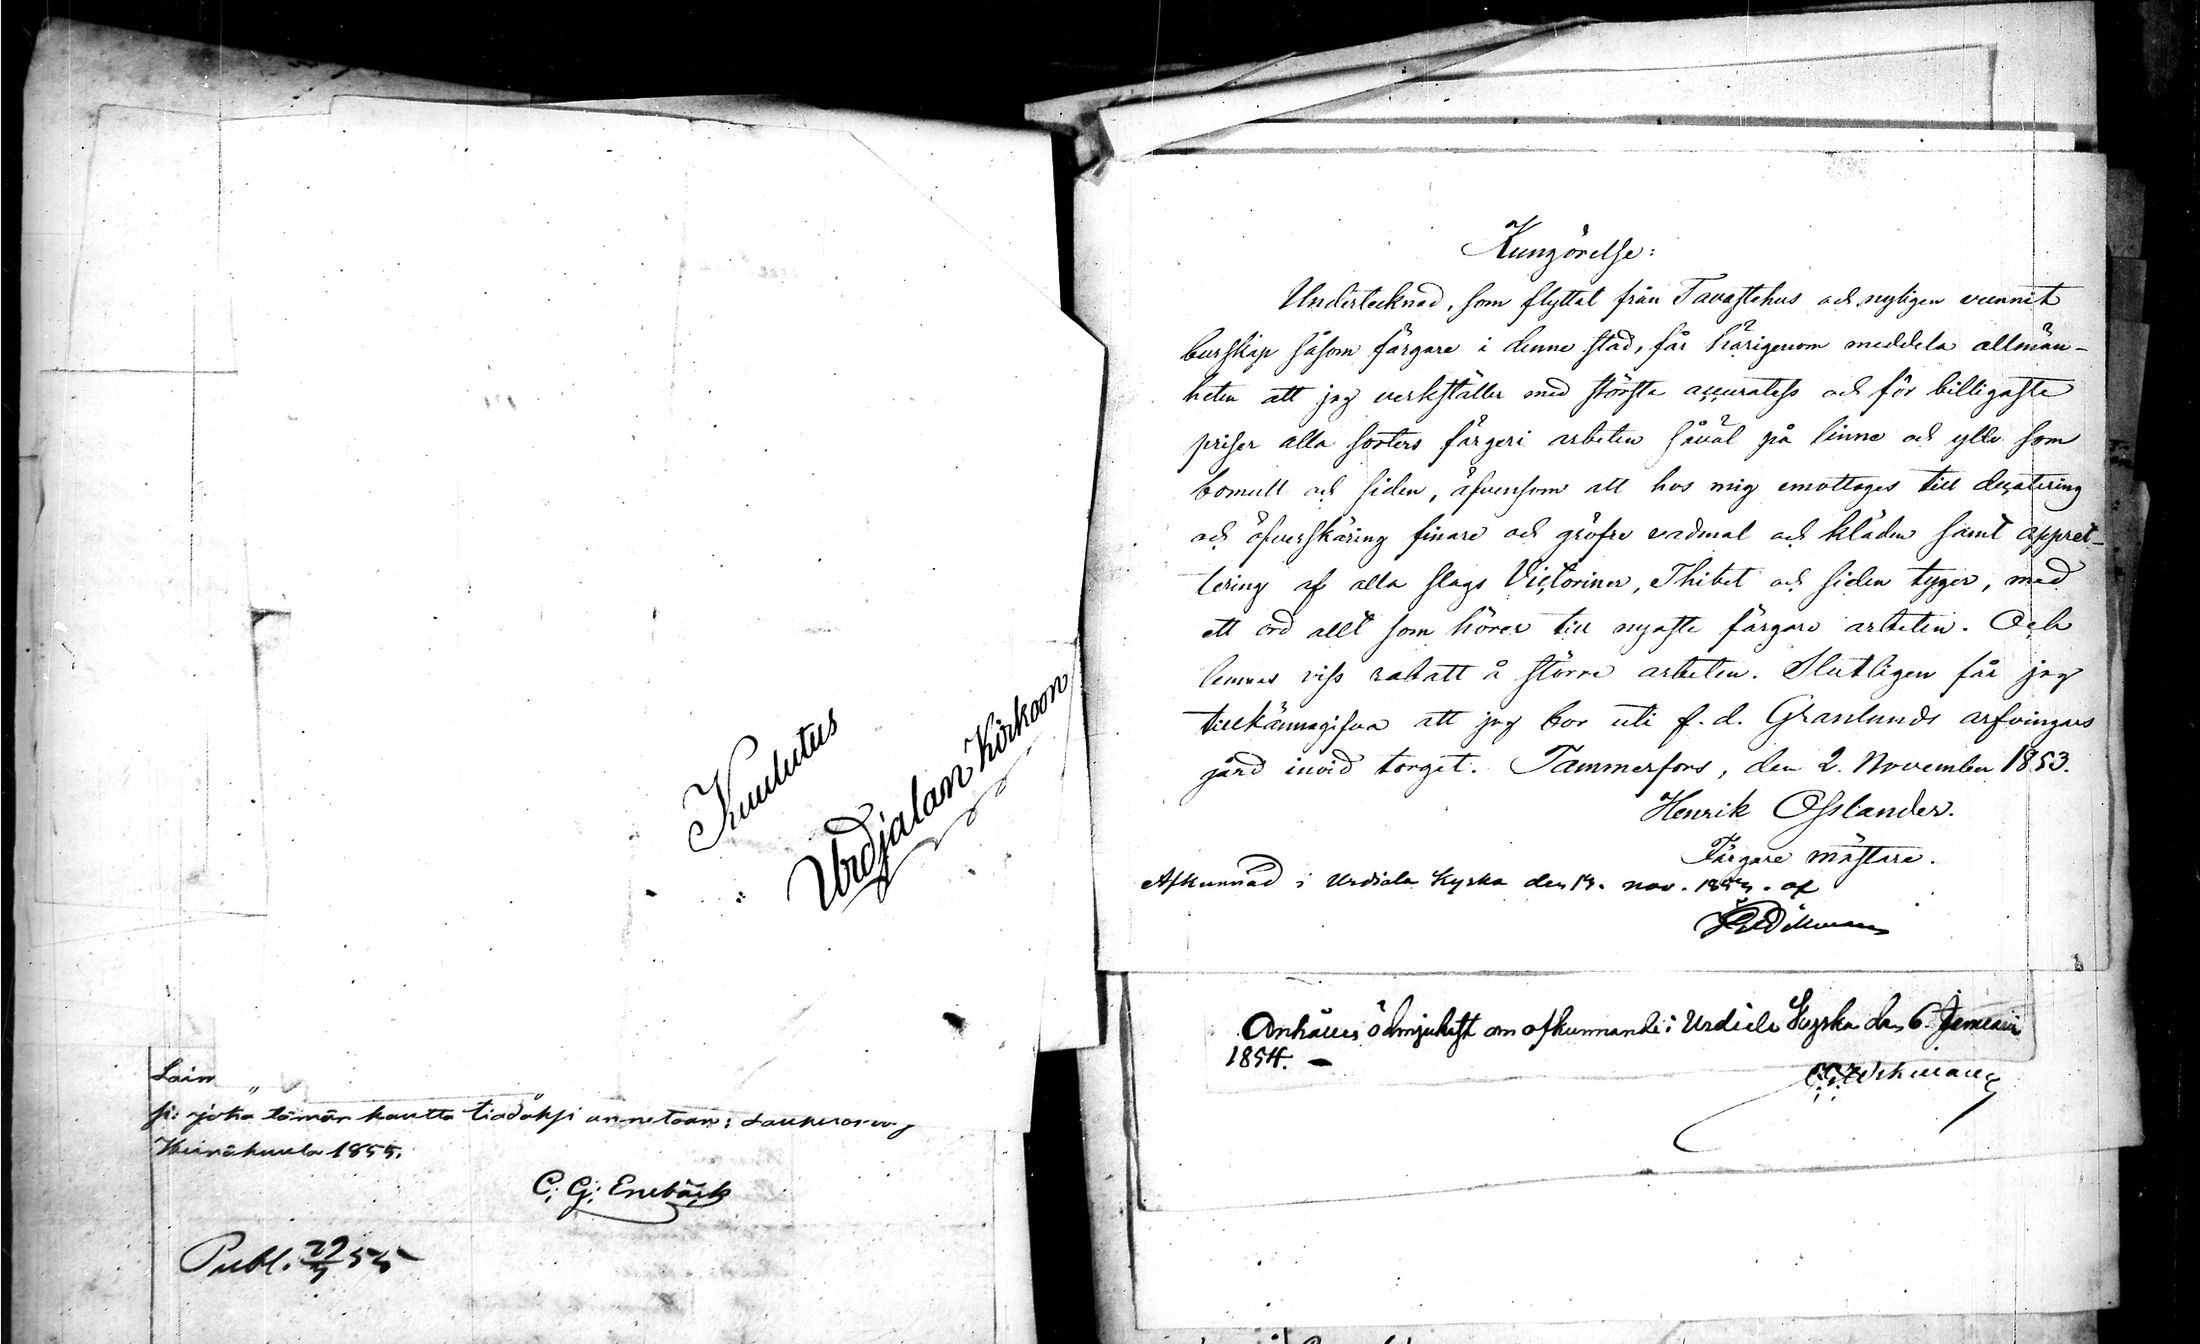 Kuulutus
Urdjalan Kirkoon
Lain
si: joka tämän kautta tiadoksi annetaan;
Heinäkuula 1855.
C. G. Enebäck
Publ. 22/7 55
Kungörelse:
Undertecknad, som flyttat från Tavastehus och nyligen vunnit
burskap såsom färgare i denne stad, får härigenom meddela allmän-
heten att jag verkställer med största accuratess och för billigaste
priser alla sorters färgeri arbeten såväl på linne och ylle som
bomull och siden, äfvensom att hos mig emottages till decatering
och öfverskäring finare och gröfre vadmal och kläden samt appret-
tering af alla slags Victoriner, Thibet och siden tyger, med
ett ord allt som hörer till nyaste färgare arbeten. Och
lemnas viss rabatt å större arbeten. Slutligen får jag
tillkännagifva att jag bor uti f. d. Granlunds arfvingars
gård invid torget. Tammerfors, den 2. November 1853.
Henrik Osslander.
Färgare mästare.
Afkunnad i Urdiala Kyrka den 13. nov. 1853. af
Anhålles ödmjukast om afkunnande i Urdiala Kyrka den 6. Januarii
1854. –